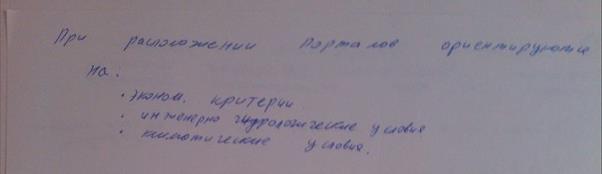 При расположении порталов ориентируются
на:
• эконом. критерии
• инженерно гидрологические условия
• климатические условия.